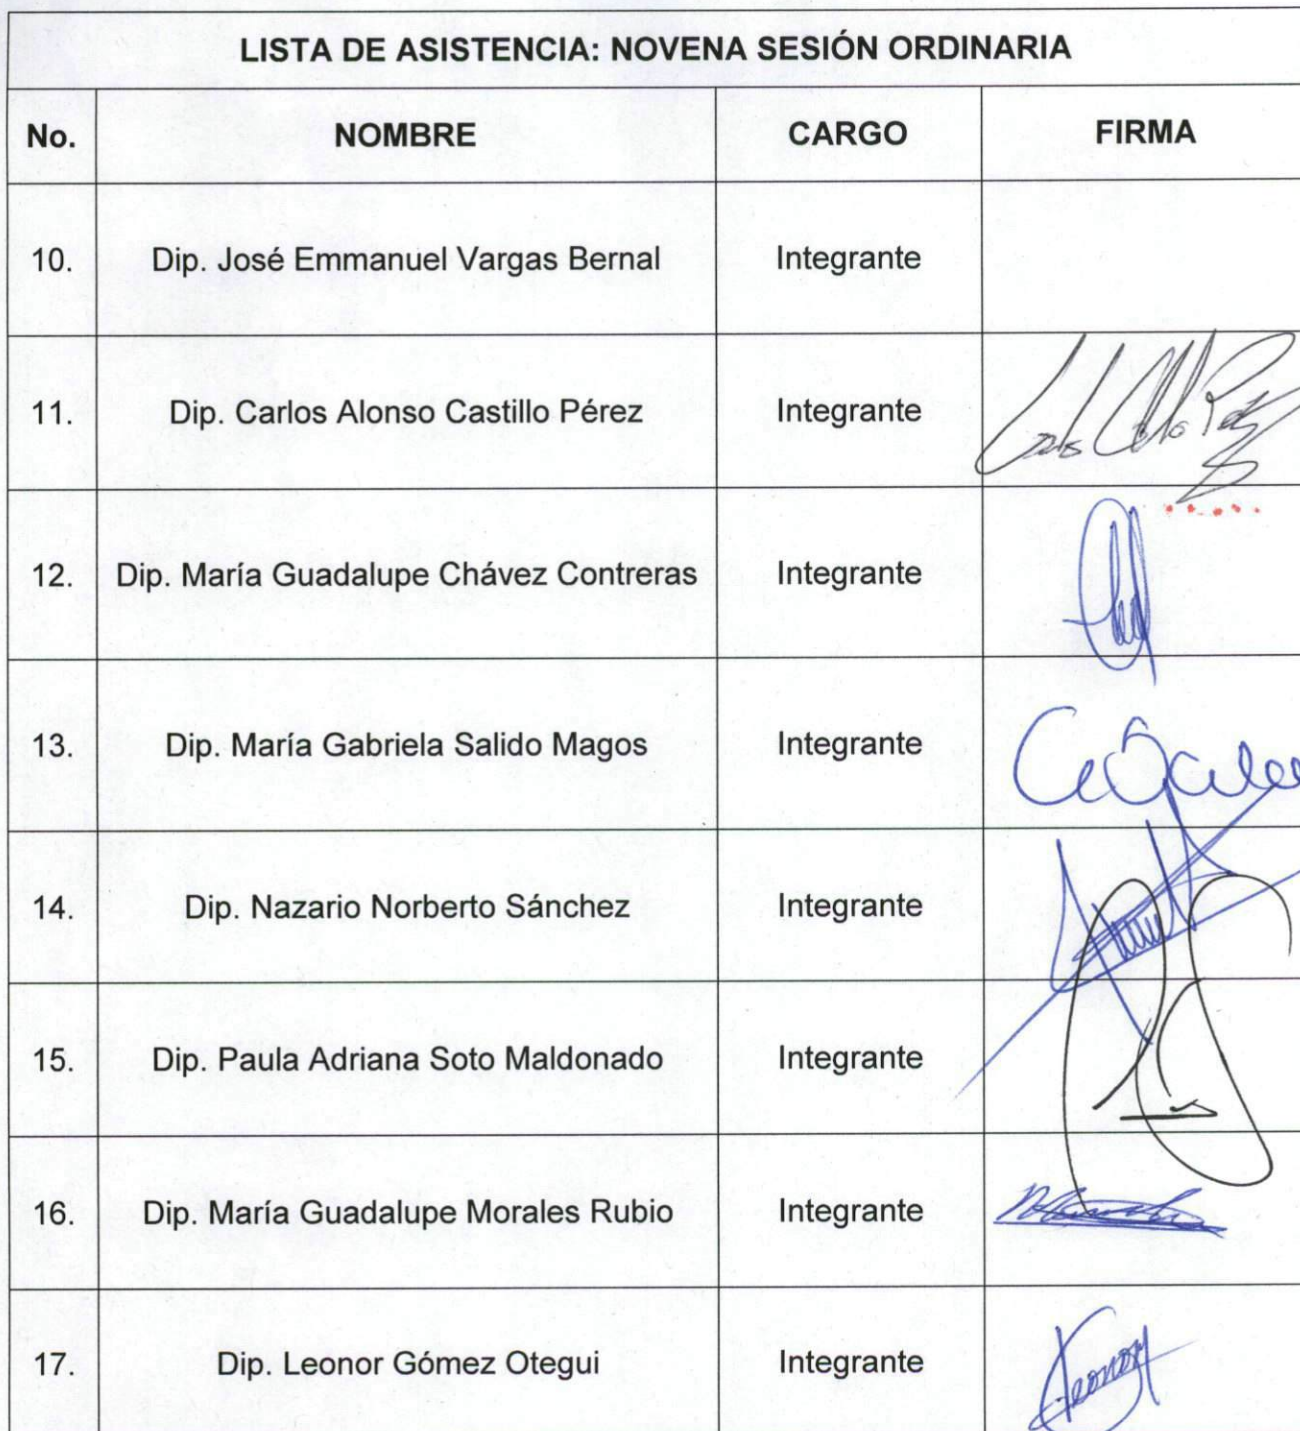 LISTA DE ASISTENCIA: NOVENA SESIÓN ORDINARIA
No. NOMBRE CARGO FIRMA
10. Dip. José Emmanuel Vargas Bernal Integrante
11. Dip. Carlos Alonso Castillo Pérez Integrante
12. Dip. María Guadalupe Chávez Contreras Integrante
13. Dip. María Gabriela Salido Magos Integrante
14. Dip. Nazario Norberto Sánchez Integrante
15. Dip. Paula Adriana Soto Maldonado Integrante
16. Dip. María Guadalupe Morales Rubio Integrante
17. Dip. Leonor Gómez Otegui Integrante Leonor